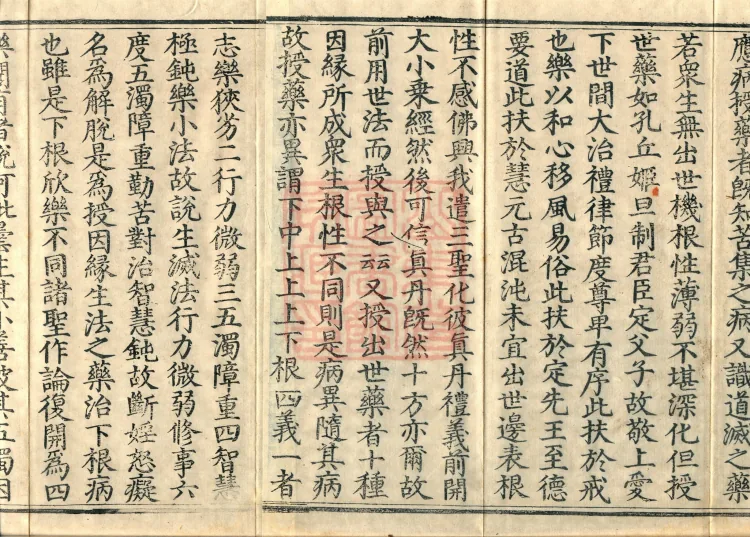 應病授藥者旣知苦集之病又識道滅之藥
若衆生無出世機根性薄弱不堪深化但授
世藥如孔丘姬旦制君臣定父子故敬上愛
下世間大治禮律節度尊卑有序此扶於戒
也樂以和心移風易俗此扶於定先王至德
要道此扶於慧元古混沌未宜出世邊表根
性不感佛興我遣三聖化彼眞丹禮義前開
大小乗經然後可信眞丹旣然十方亦爾故
前用世法而授與之云云又授出世藥者十種
因緣所成衆生根性不同則是病異隨其病
故授藥亦異謂下中上上上下根四義一者
志樂狹劣二行力微弱三五濁障重四智慧
極鈍樂小法故說生滅法行力微弱修事六
度五濁障重勤苦對治智慧鈍故斷婬怒癡
名爲解脫是爲授因緣生法之藥治下根病
也雖是下根欣樂不同諸聖作論復開爲四